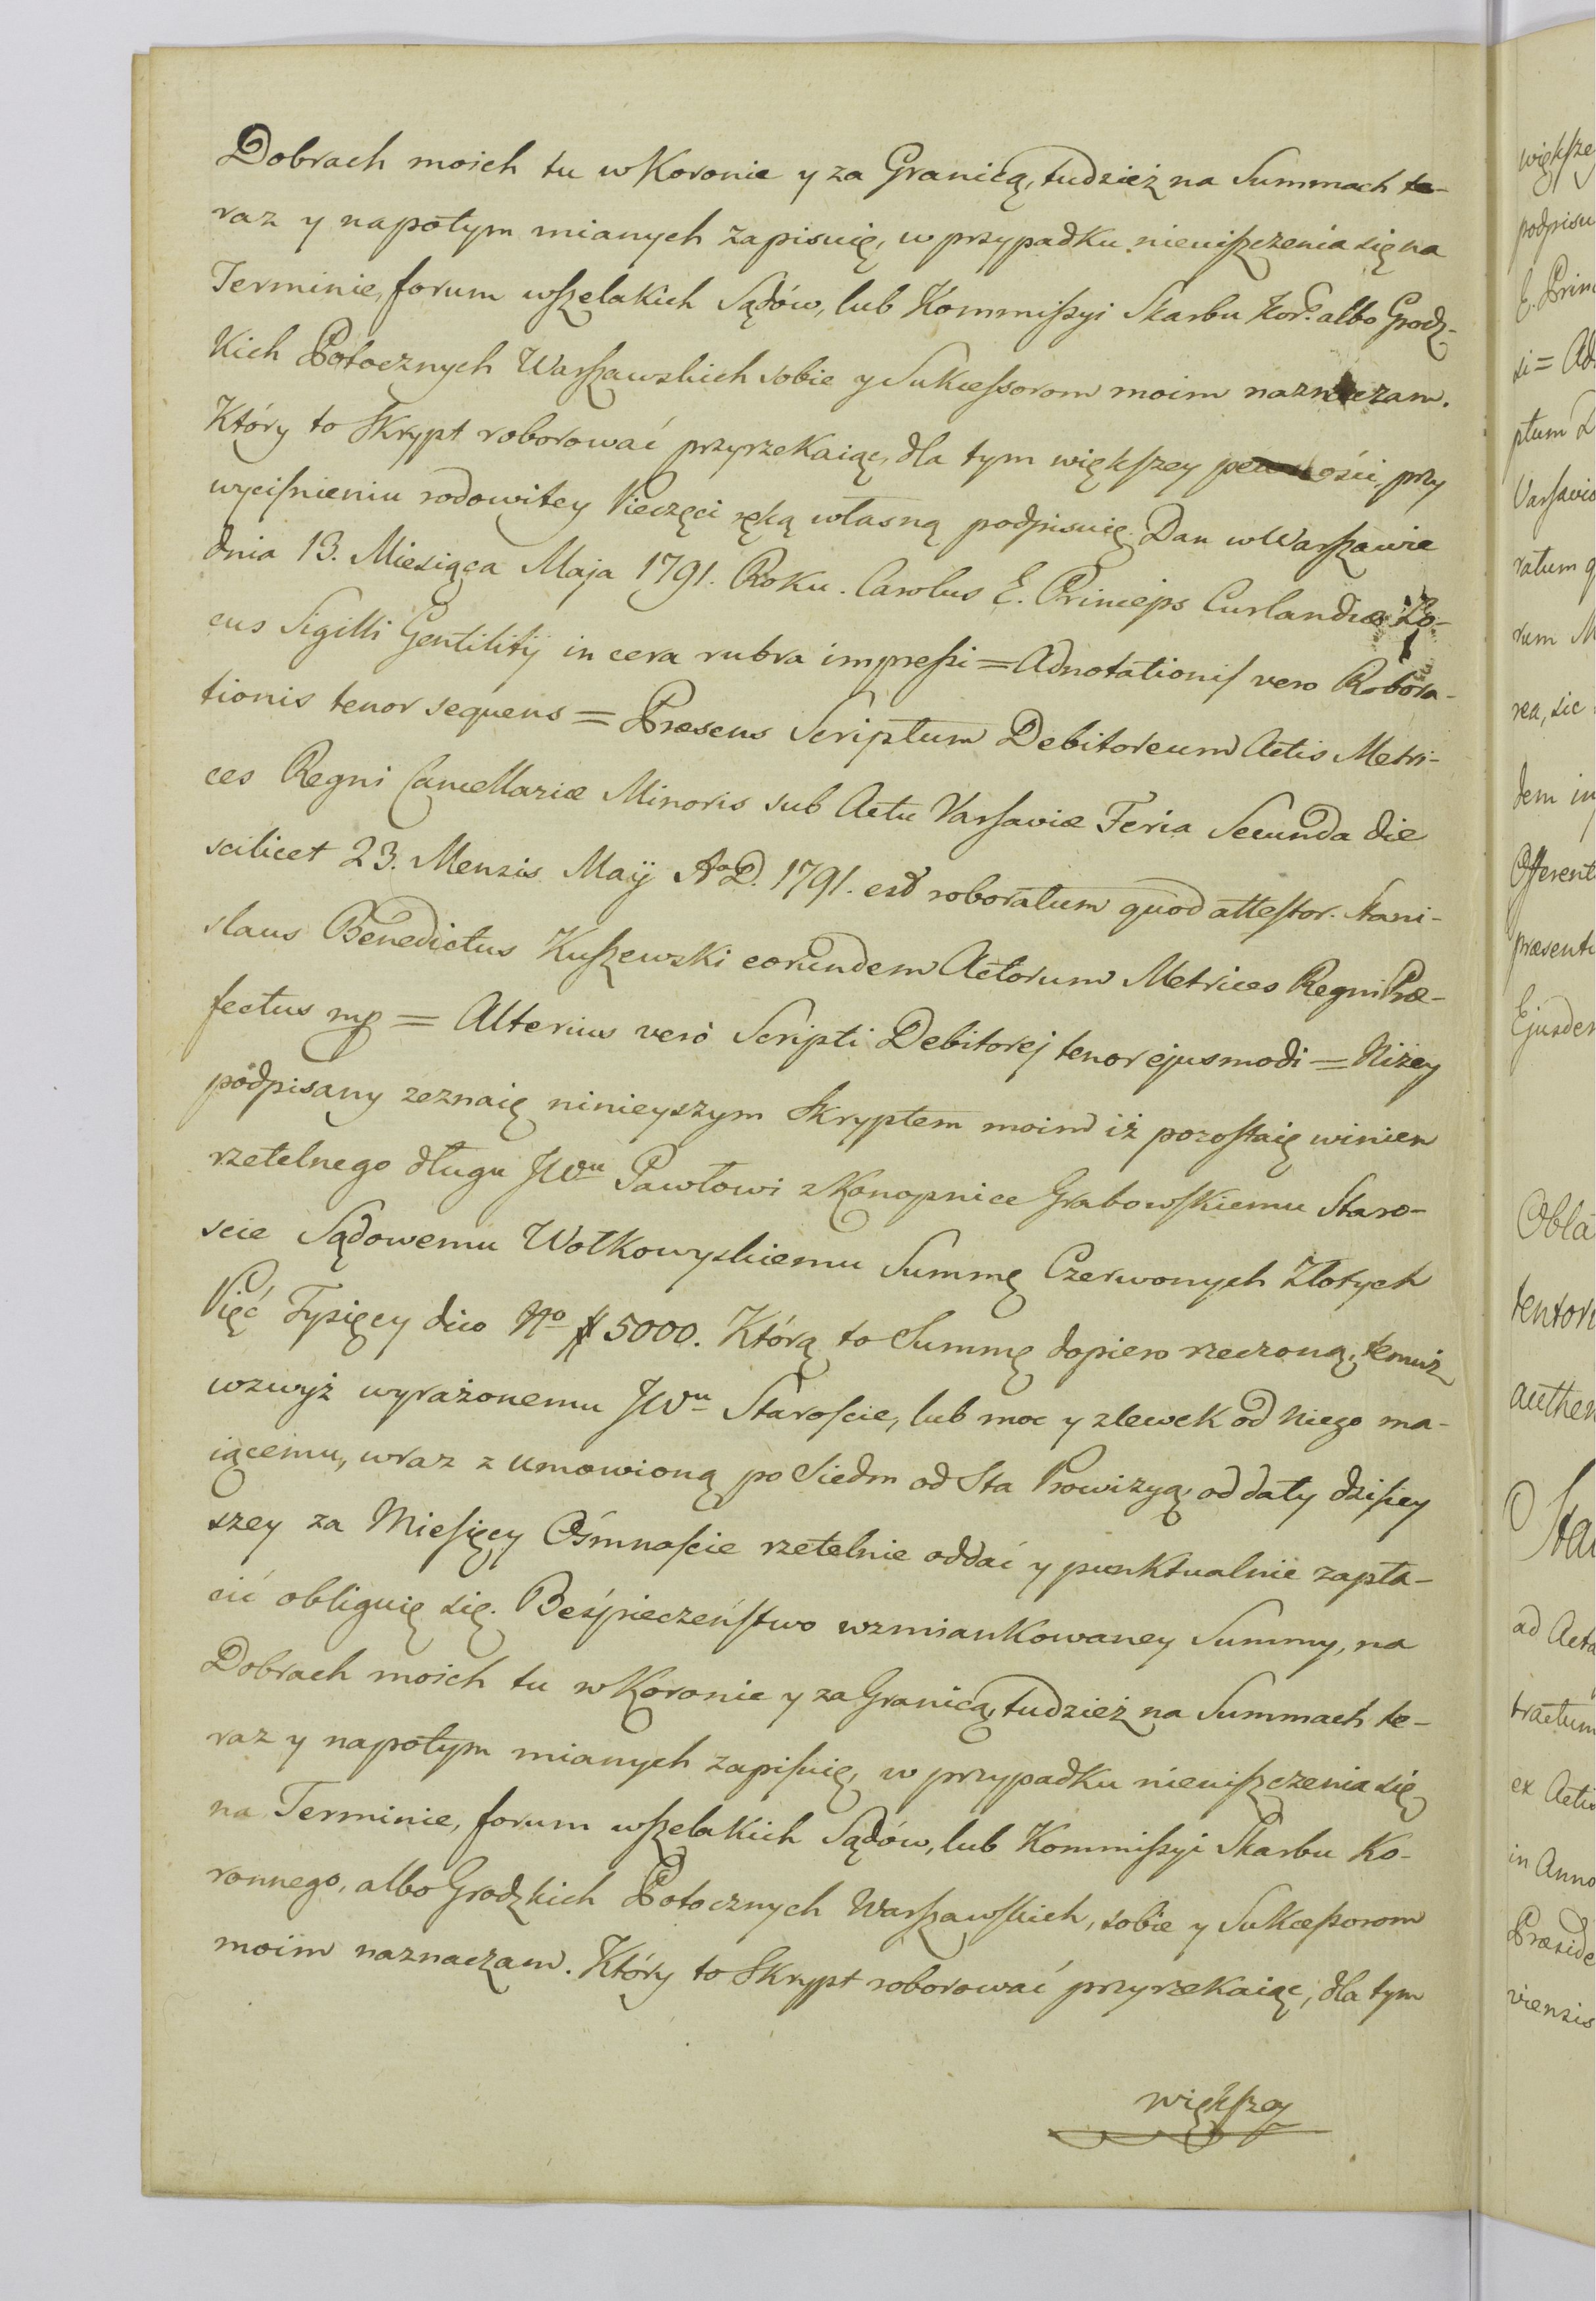 Dobrach moich tu w Koronie y za Granicą, tudzież na Summach te-
raz y napotym mianych zapisuię, w przypadku nieuiszczenia się na
Terminie, forum wszelakich Sądów, lub Kommissyi Skarbu Kor: albo Grodz-
kich Potocznych Warszawskich sobie y Sukcessorom moim naznaczam.
Który to Skrypt roborować przyrzekaiąc, dla tym większey pewności, przy
wyciśnieniu rodowitey Pieczęci ręką własną podpisuię. Dan w Warszawie
dnia 13. Miesiąca Maja 1791. Roku. Carolus E. Princeps Curlandiæ Lo-
cus Sigilli Gentilitij in cera rubra impressi = Adnotationis vero Robora-
tionis tenor sequens = Præsens Scriptum Debitoreum Actis Metri-
ces Regni Cancellariæ Minoris sub Actu Varsaviæ Feria Secunda die
scilicet 23. Mensis Maÿ Ao D. 1791. est roboratum quod attestor. Stani-
slaus Benedictus Kuszewski eorundem Actorum Metrices Regni Præ-
fectus mp = Alterius verò Scripti Debitorej tenor ejusmodi = Niżey
podpisany zeznaię ninieyszym Skryptem moim iż pozostaię winien
rzetelnego długu JWu Pawłowi z Konopnice Grabowskiemu Staro-
scie Sądowemu Wołkowyskiemu Summę Czerwonych Złotych
Pięć Tysięcy dico No # 5000. Którą to Summę dopiero rzeczoną, temuż
wzwyż wyrażonemu JWu Staroscie, lub moc y zlewek od Niego ma-
iącemu, wraz z umowioną po Siedm od Sta Prowizyą, od daty dzisiey
szey za Miesięcy Ośmnaście rzetelnie oddać y punktualnie zapła-
cić obliguię się. Beśpieczeństwo wzmiankowaney Summy, na
Dobrach moich tu w Koronie y za Granicą, tudzież na Summach te-
raz y napotym mianych zapisuię, w przypadku nieuiszczenia się
na Terminie, forum wszelakich Sądów, lub Kommissyi Skarbu Ko-
ronnego, albo Grodzkich Potocznych Warszawskich, sobie y Sukcessorom
moim naznaczam. Który to Skrypt roborować przyrzekaiąc, dla tym
większey
większe
podpisu
E. Prin
si = Ad
ptum D
Varsavia
ratum q
rum M
rea, sic
dem in
Offerent
præsenti
Ejusdem
Obla
tentor
authen
Sta
ad Acta
tractum
ex Actis
in Anno
Præside
viensis